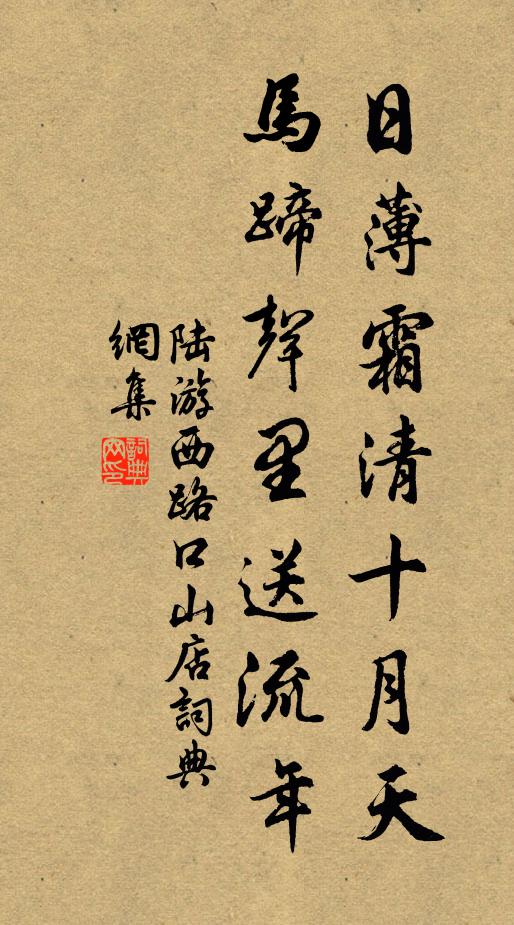 日薄霜清十月天
馬蹄聲里送流年
陆游西路口山店詞典
網集
詞典网印